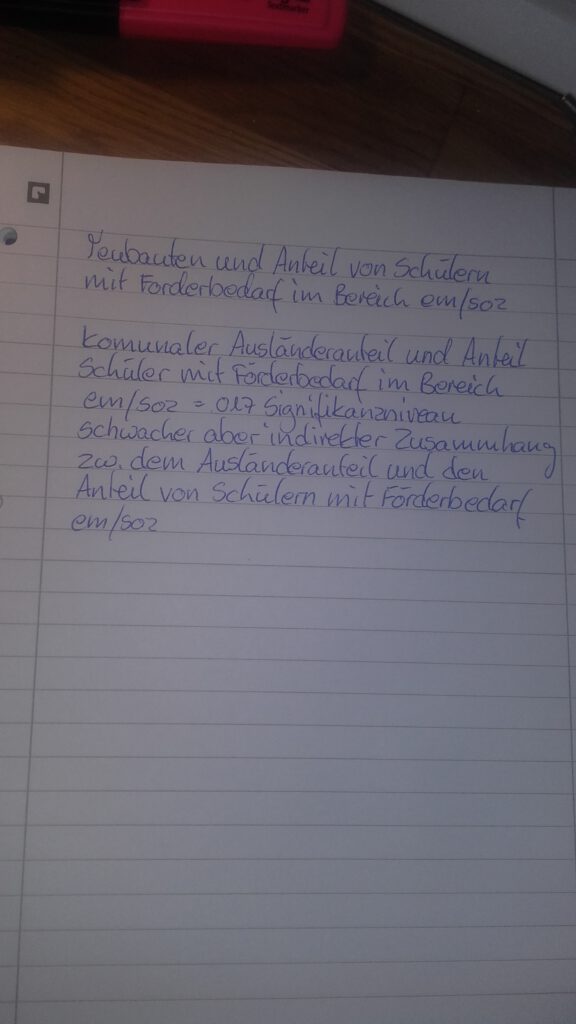 Textmarker
Neubauten und Anteil von Schülern
mit Förderbedarf im Bereich em/soz
Komunaler Ausländeranteil und Anteil
Schüler mit Förderbedarf im Bereich
em/soz = 017 Signifikanzniveau
schwacher aber indirekter Zusammhang
zw. dem Ausländeranteil und den
Anteil von Schülern mit Förderbedarf
em/soz